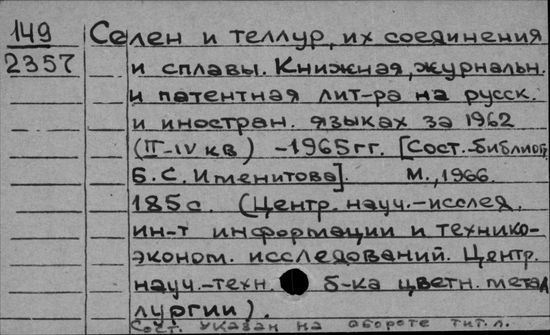 149 Селен и теллур, их соединения
2357 и сплавы. Книжная, журнальн.
и патентная лит-ра на русск.
и иностран. языках за 1962
(II-IV кв) -1965 гг. [Сост. библиог.
Б. С. Именитова]. М., 1966.
185 с. (Центр. науч.-исслед.
ин-т информации и технико-
эконом. исследований. Центр.
науч.-техн. б-ка цветн. метал
лургии).
Сост. указан на обороте тит. л.